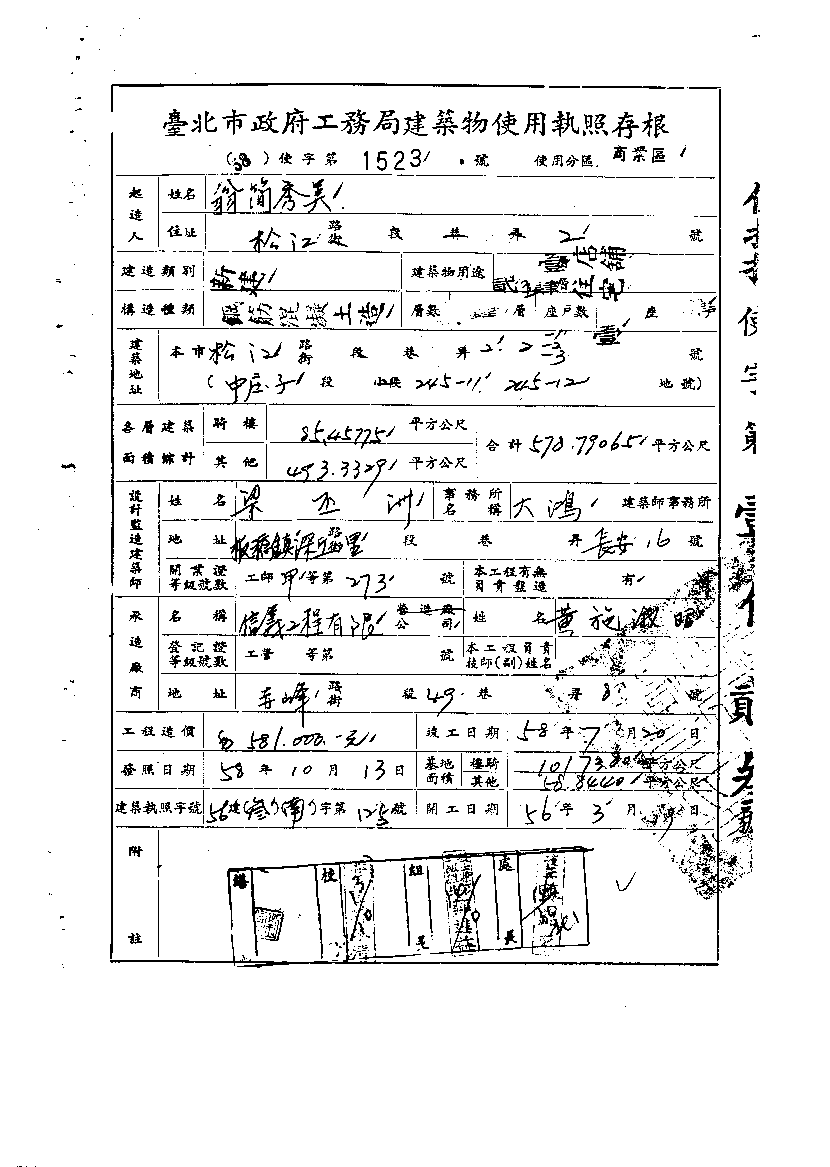 臺北市政府工務局建築物使用執照存根
(58) 使字第 1523 號 使用分區 商業區
起造人 姓名 翁簡秀美
住址 松江路 段 巷 弄 2 號
建造類別 新建 建築物用途 壹店舖 住宅
構造種類 鋼筋混凝土造 層數 層 座戶數 座 壹
建築地址 本市 松江 路街 段 巷 弄 2. 2-1 -2 -3 號
(中庄子段 小段 245-11 245-12 地號)
各層建築面積總計 騎樓 85.4577 平方公尺 合計 578.7906 平方公尺
其他 493.3329 平方公尺
設計監造建築師 姓名 梁丕洲 事務所名稱 大鴻 建築師事務所
地址 板橋鎮深丘里 段 巷 弄 長安 16 號
開業證等級號數 工師 甲 等第 273 號 本工程有無負責監造 有
承造廠商 名稱 信義工程有限 營造廠公司 姓名 黃施淑
登記證等級號數 工營 等第 號 本工程負責技師(副)姓名
地址 路街 段 49 巷 弄 8 號
工程造價 581.000.-元 竣工日期 58年7月20日
發照日期 58年10月13日 基地面積 樓騎 平方公尺
其他 58.8440 平方公尺
建築執照字號 56建(叁)(南)字第 125 號 開工日期 56年3月 日
附註
繕 校 組長 處長